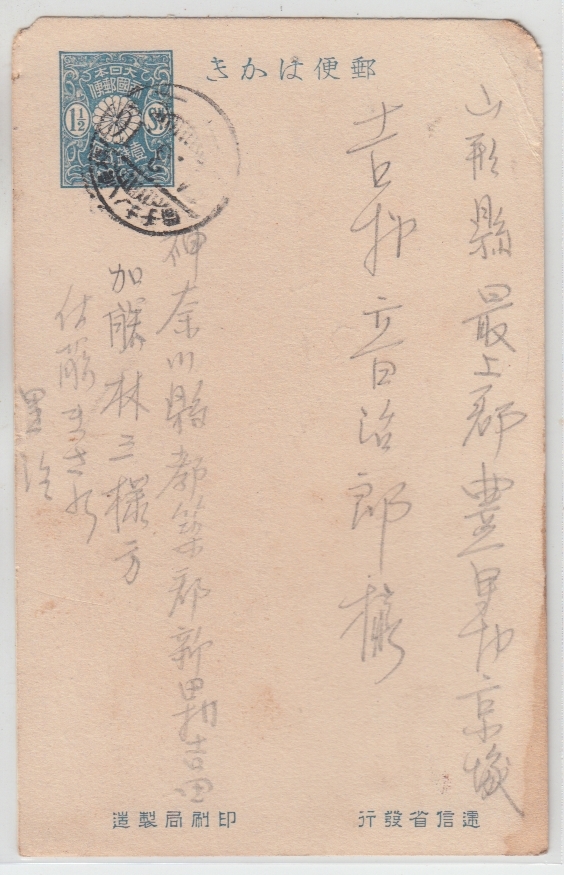 郵便はかき
大日本
帝國郵便
1½ Sn
山形縣最上郡豊里村京塚
吉村音治郎様
神奈川縣都築郡新田村吉田
加藤林三様方
佐藤
印刷局製造
遞信省發行